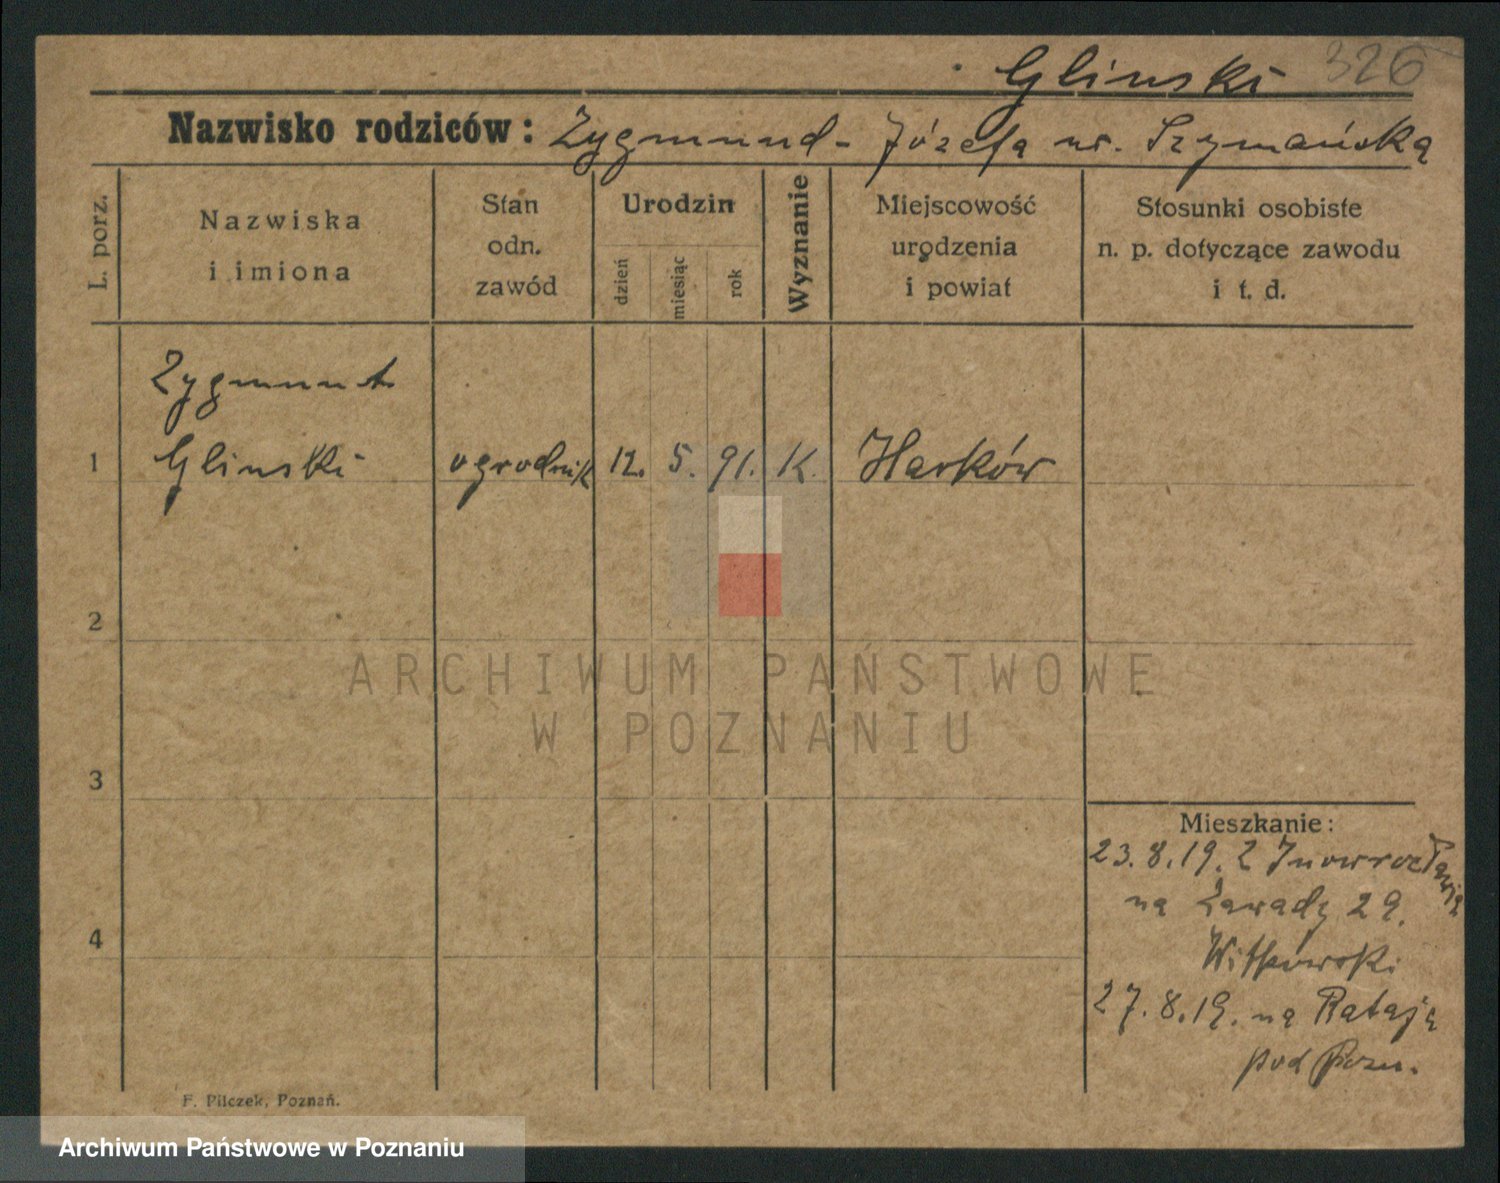 Glinski 326
Nazwisko rodziców: Zygmund - Józefa ur. Szymańska
L. porz.
Nazwiska
i imiona
Stan
odn.
zawód
Urodzin
dzień
miesiąc
rok
Wyznanie
Miejscowość
urodzenia
i powiat
Stosunki osobiste
n. p. dotyczące zawodu
i t. d.
Zygmunt
1 Glinski ogrodnik 12. 5. 91. K. Harków
2
3
4
ARCHIWUM PAŃSTWOWE
W POZNANIU
Mieszkanie:
23.8.19. z Inowrocławia
na Zawady 29.
Witkowski
27.8.19. na Rataje
pod Pozn.
F. Pilczek, Poznań.
Archiwum Państwowe w Poznaniu